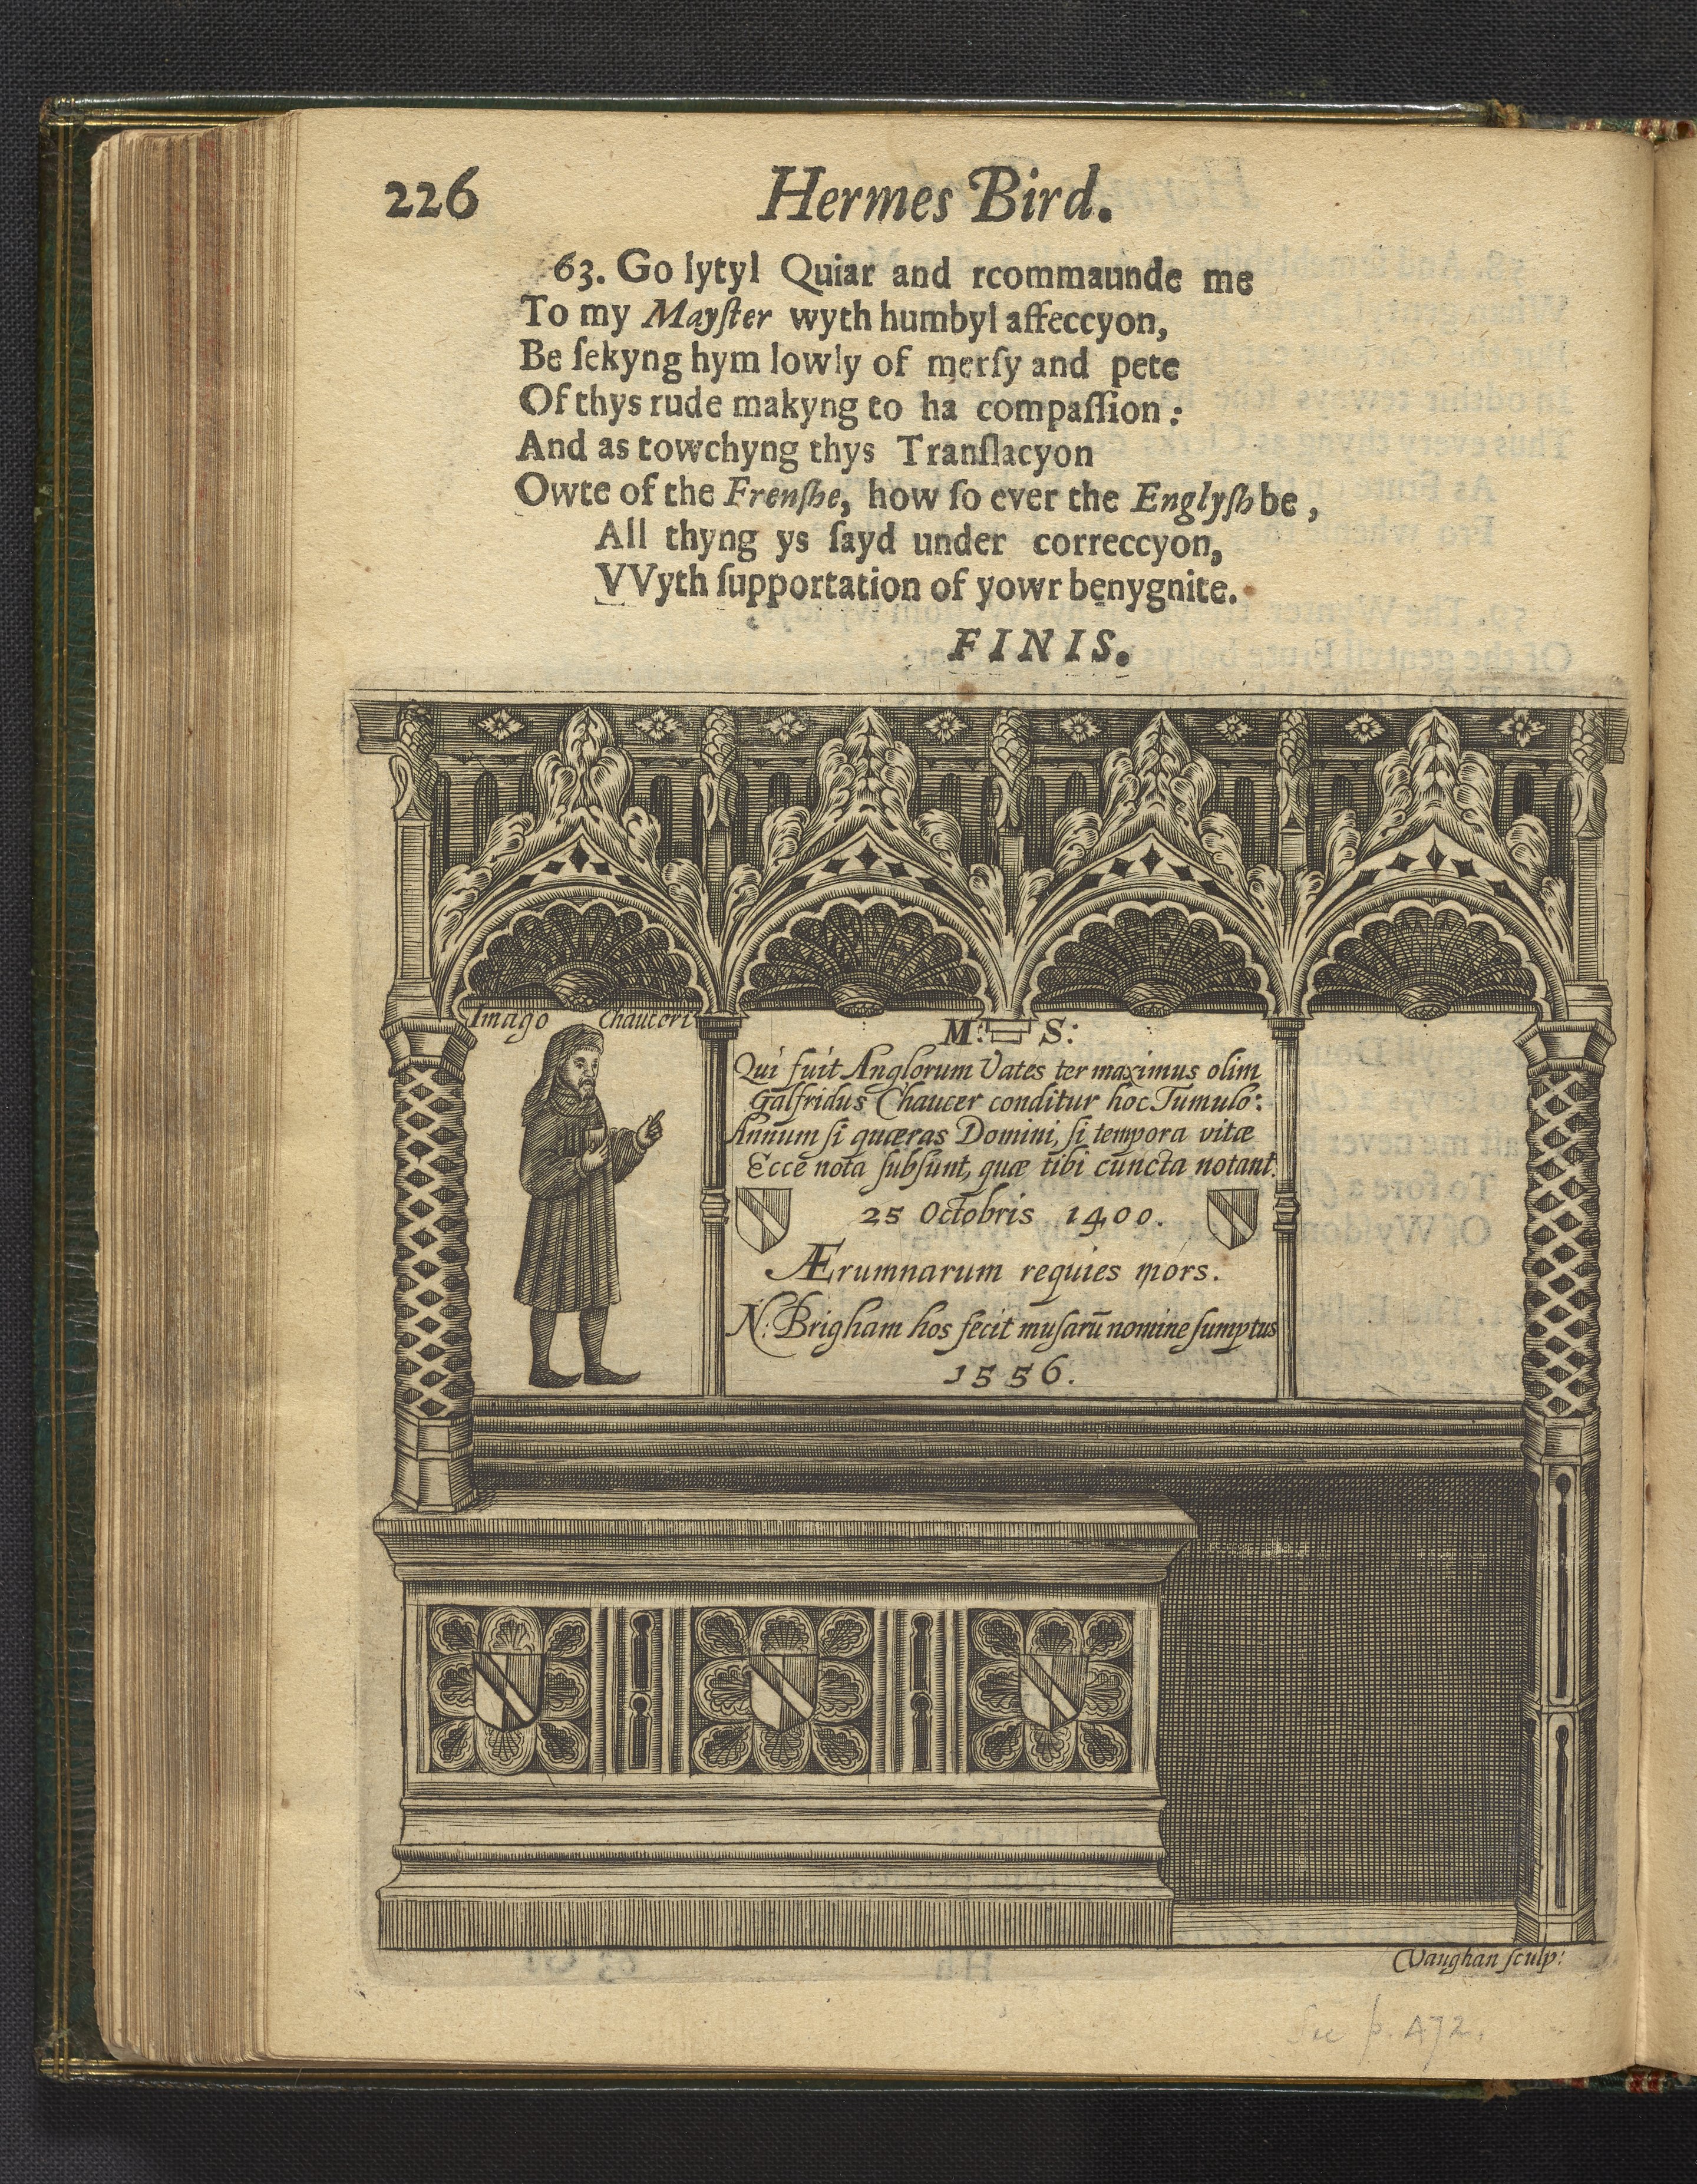 226 Hermes Bird.
63. Go lytyl Quiar and rcommaunde me
To my Mayſter wyth humbyl affeccyon,
Be ſekyng hym lowly of merſy and pete
Of thys rude makyng to ha compaſſion:
And as towchyng thys Tranſlacyon
Owte of the Frenſhe, how ſo ever the Englyſh be,
All thyng ys ſayd under correccyon,
VVyth ſupportation of yowr benygnite.
FINIS.
Imago Chauceri
M: S:
Qui fuit Anglorum Vates ter maximus olim
Galfridus Chaucer conditur hoc Tumulo:
Annum ſi quæras Domini, ſi tempora vitæ
Ecce nota ſubſunt, quæ tibi cuncta notant.
25 Octobris 1400.
Ærumnarum requies mors.
N: Brigham hos fecit muſarū nomine ſumptus
1556.
Vaughan ſculp:
See p. 472.